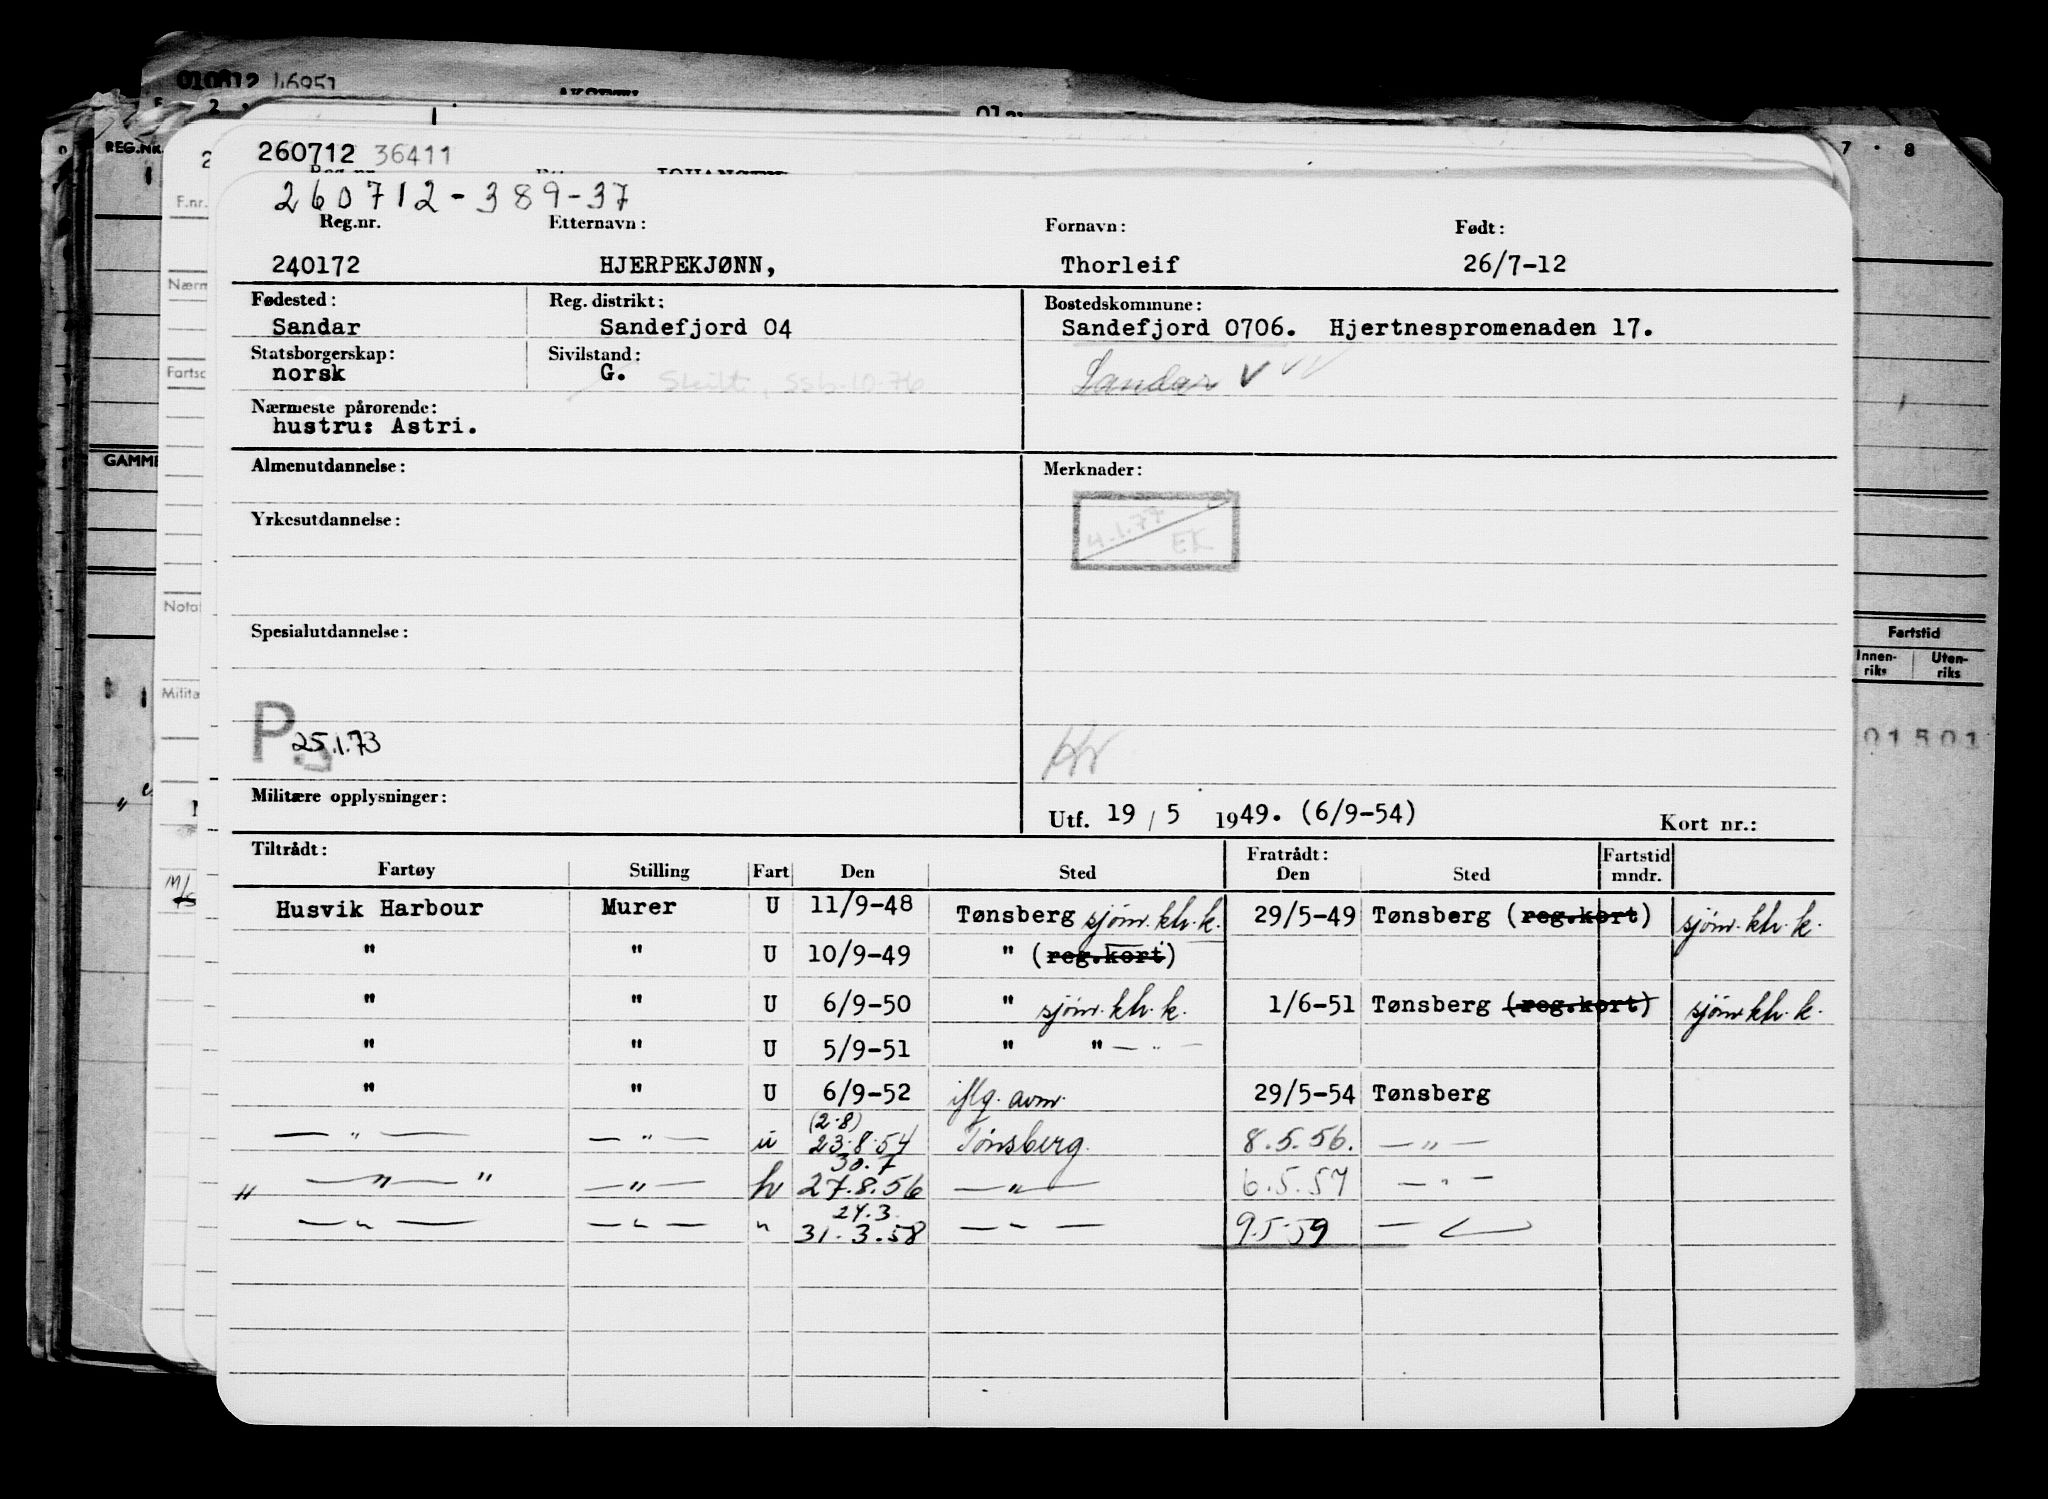 010812 46951
REG.NR.
7 · 8
260712 36411
260712-389-37
Reg.nr. Etternavn: Fornavn: Født:
240172 HJERPEKJØNN, Thorleif 26/7-12
Fødested: Reg. distrikt: Bostedskommune:
Sandar Sandefjord 04 Sandefjord 0706. Hjertnespromenaden 17.
Statsborgerskap: Sivilstand:
norsk G. Skilt, Ssb.10.76 Sandar V
Nærmeste pårørende:
hustru: Astri.
Almenutdannelse: Merknader:
4.1.77
EK
Yrkesutdannelse:
Spesialutdannelse:
Fartstid
Innen-riks Uten-riks
P 25.1.73
01501
Militære opplysninger:
Utf. 19 / 5 1949. (6/9-54) Kort nr.:
Tiltrådt: Fratrådt: Fartstid
Fartøy Stilling Fart Den Sted Den Sted mndr.
Husvik Harbour Murer U 11/9-48 Tønsberg sjøm.kh.k. 29/5-49 Tønsberg (reg.kort) sjøm.kh.k.
" " U 10/9-49 " (reg.kort)
" " U 6/9-50 " sjøm.kh.k. 1/6-51 Tønsberg (reg.kort) sjøm.kh.k.
" " U 5/9-51 " " — " —
" " U 6/9-52 iflg. avm. 29/5-54 Tønsberg
(2.8)
— " — — " — u 23.8.54 Tønsberg. 8.5.56. — " —
30.7
" — " — " — " — 27.8.56 — " — 6.5.57 — " —
24.3
— " — — " — " 31.3.58 — " — 9.5.59 — " —